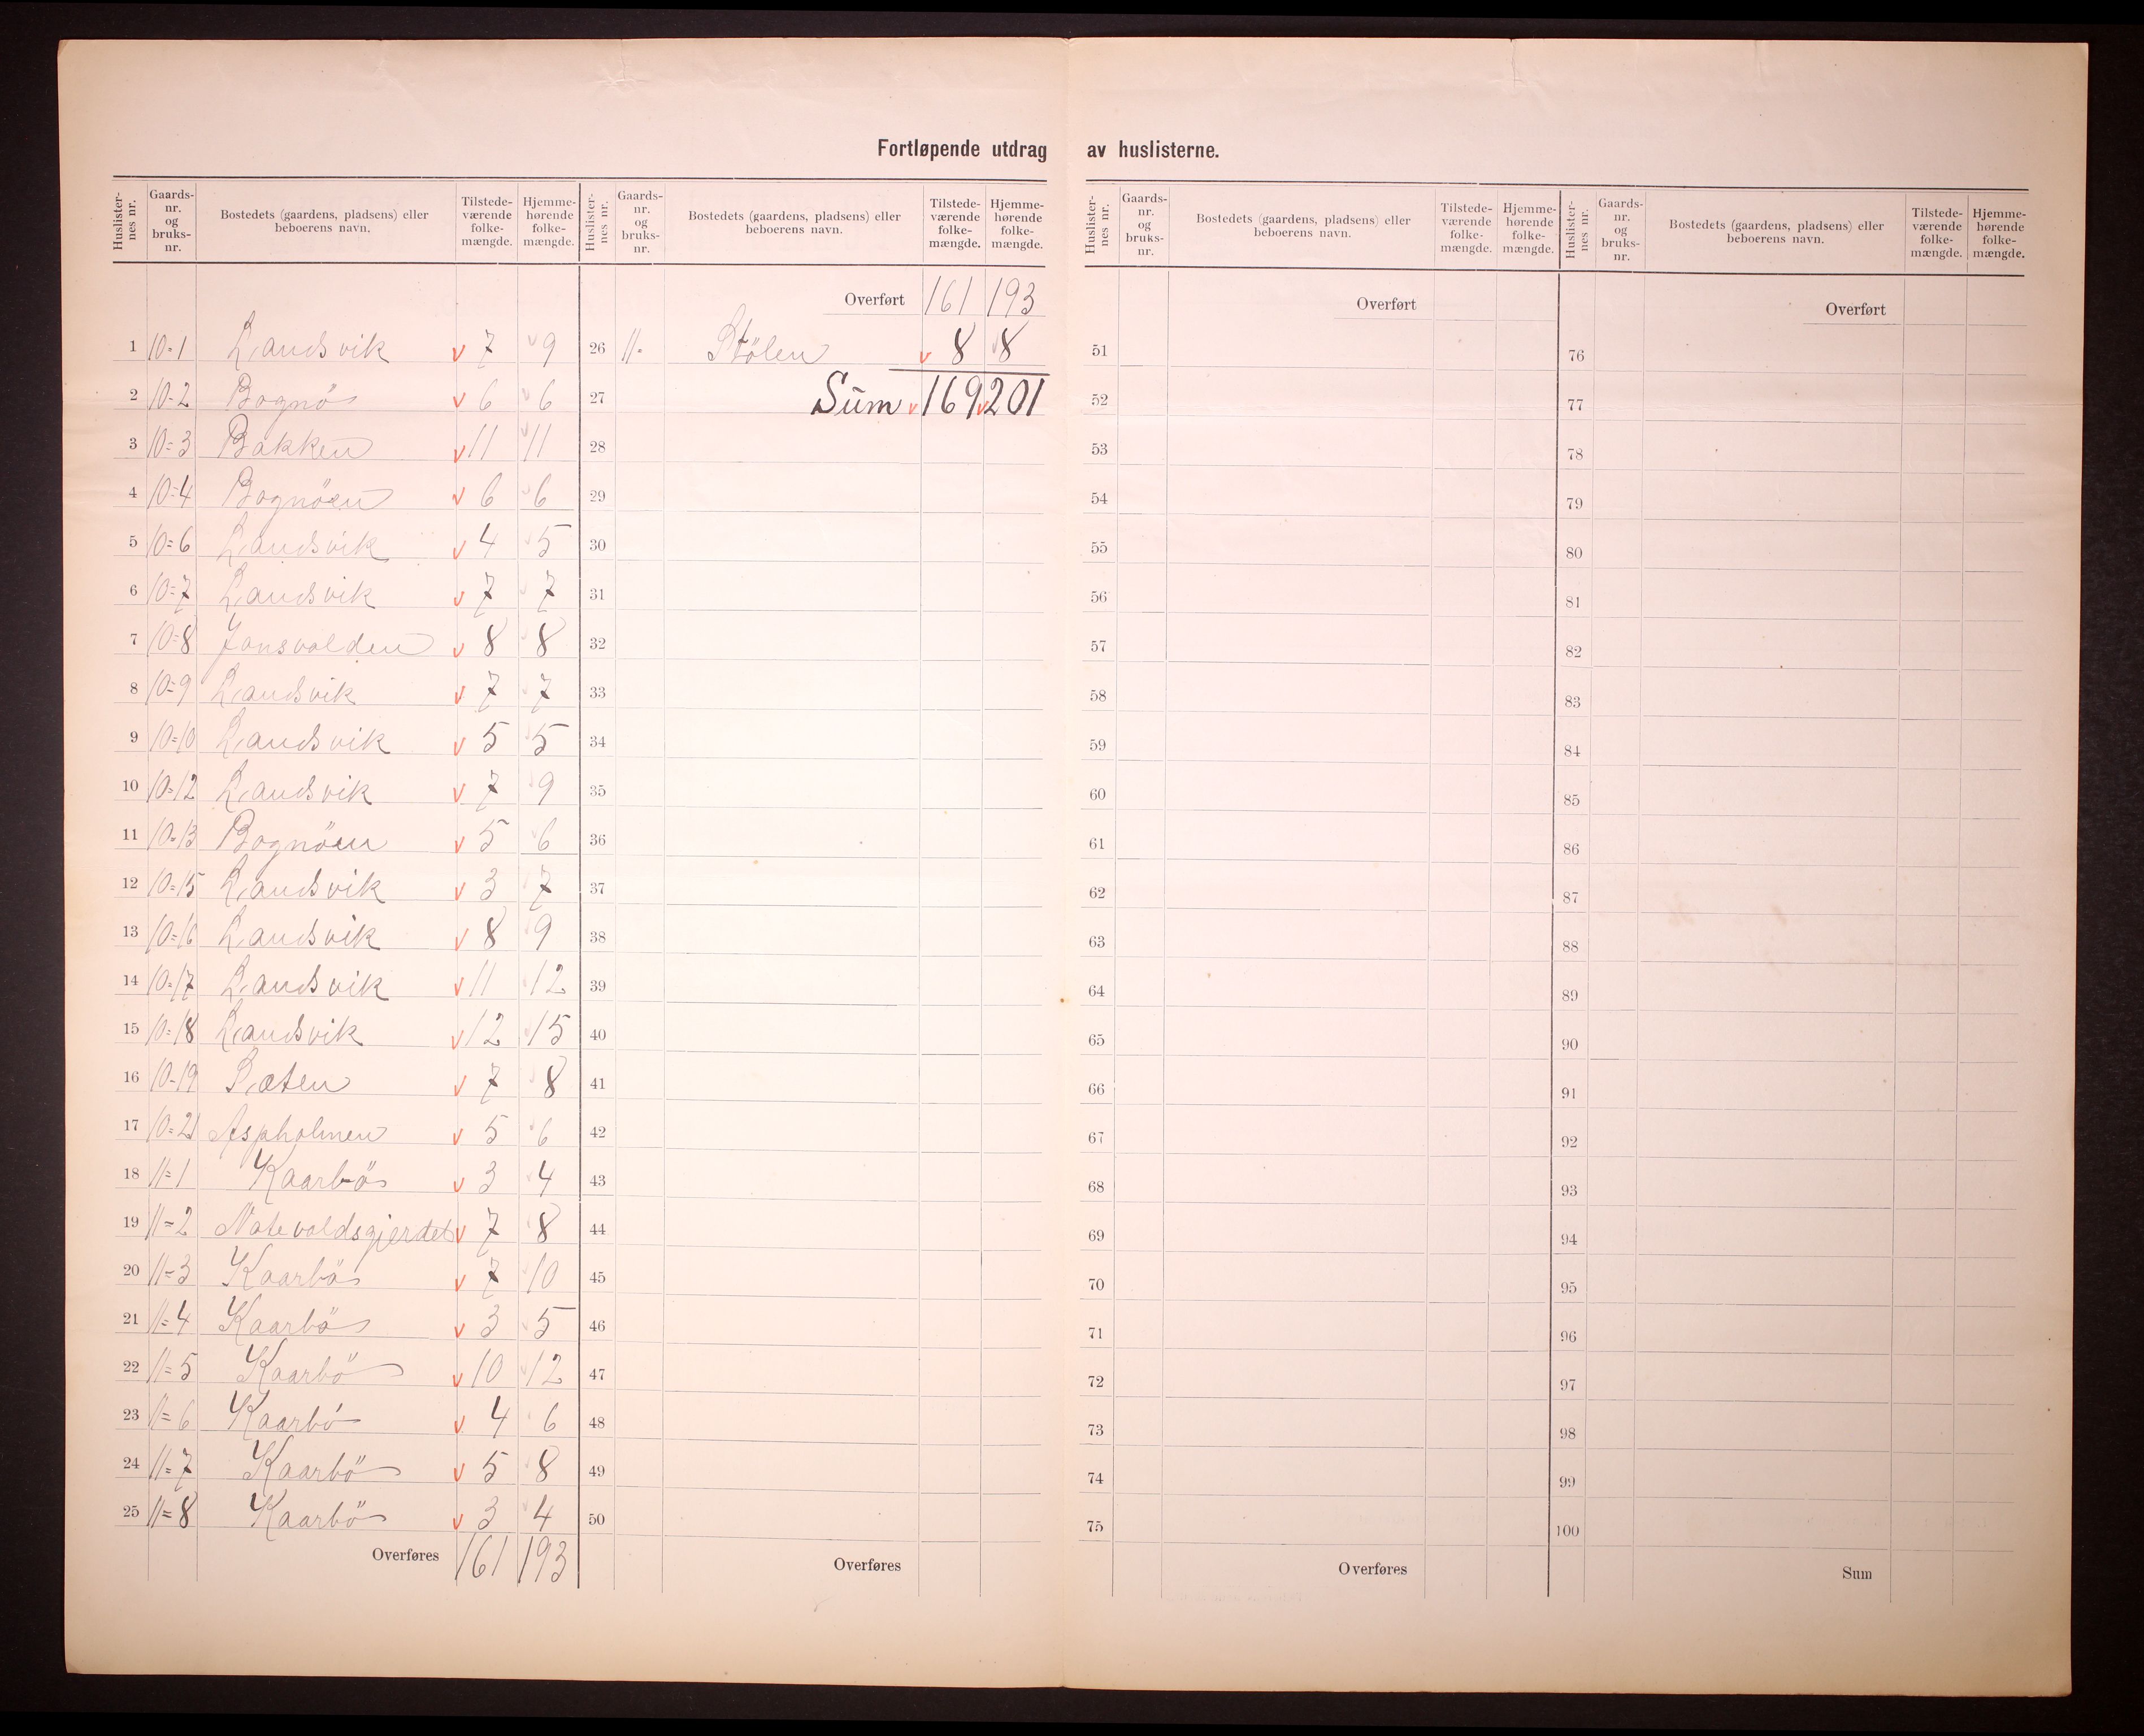 Fortløpende utdrag av huslisterne.
Huslister-nes nr. Gaards-nr. og bruks-nr. Bostedets (gaardens, pladsens) eller beboerens navn. Tilstede-værende folke-mængde. Hjemme-hørende folke-mængde.
1 10-1 Landsvik v 7 v 9
2 10-2 Bognö v 6 v 6
3 10=3 Bakken v 11 v 11
4 10=4 Bognöen v 6 v 6
5 10=6 Landsvik v 4 v 5
6 10=7 Landsvik v 7 v 7
7 10=8 Jonsvolden v 8 v 8
8 10=9 Landsvik v 7 v 7
9 10=10 Landsvik v 5 v 5
10 10=12 Landsvik v 7 v 9
11 10=13 Bognöen v 5 v 6
12 10=15 Landsvik v 3 v 7
13 10=16 Landsvik v 8 v 9
14 10=17 Landsvik v 11 v 12
15 10=18 Landsvik v 12 v 15
16 10-19 v 7 v 8
17 10=21 Aspholmen v 5 v 6
18 11=1 Kaarbö v 3 v 4
19 11=2 v 7 v 8
20 11=3 Kaarbö v 7 v 10
21 11=4 Kaarbö v 3 v 5
22 11=5 Kaarbö v 10 v 12
23 11=6 Kaarbö v 4 v 6
24 11=7 Kaarbö v 5 v 8
25 11=8 Kaarbö v 3 v 4
Overføres 161 193
Huslister-nes nr. Gaards-nr. og bruks-nr. Bostedets (gaardens, pladsens) eller beboerens navn. Tilstede-værende folke-mængde. Hjemme-hørende folke-mængde.
Overført 161 193
26 11- Stölen v 8 v 8
27 Sum v 169 v 201
28
29
30
31
32
33
34
35
36
37
38
39
40
41
42
43
44
45
46
47
48
49
50
Overføres
Huslister-nes nr. Gaards-nr. og bruks-nr. Bostedets (gaardens, pladsens) eller beboerens navn. Tilstede-værende folke-mængde. Hjemme-hørende folke-mængde.
Overført
51
52
53
54
55
56
57
58
59
60
61
62
63
64
65
66
67
68
69
70
71
72
73
74
75
Overføres
Huslister-nes nr. Gaards-nr. og bruks-nr. Bostedets (gaardens, pladsens) eller beboerens navn. Tilstede-værende folke-mængde. Hjemme-hørende folke-mængde.
Overført
76
77
78
79
80
81
82
83
84
85
86
87
88
89
90
91
92
93
94
95
96
97
98
99
100
Sum